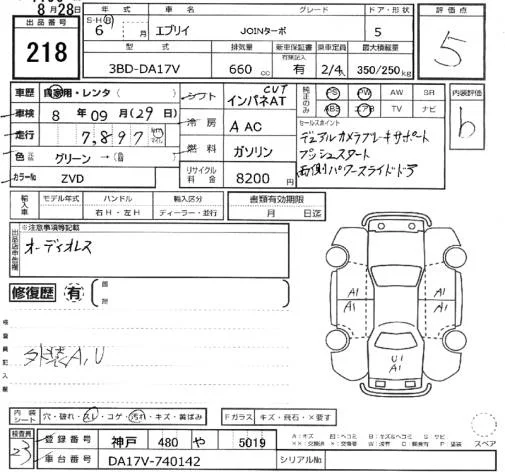 8月28日
出品番号 218
年式 S・H・R 6 年 月
車名 エブリイ
グレード JOINターボ
ドア・形状 5
型式 3BD-DA17V
排気量 660 cc
新車保証書 有
乗車定員 2/4人
最大積載量 350/250kg
評価点 5
車歴 自家用・レンタ( )
車検 8年09月(29日)
走行 7,897 km マイル
色 グリーン→( )
カラーNo ZVD
シフト CVT インパネAT
冷房 A AC
燃料 ガソリン
リサイクル料金 8200円
純正のみ PS PW AW SR
ABS エアB TV ナビ
内装評価 b
セールスポイント
デュアルカメラブレーキサポート
プッシュスタート
両側パワースライドドア
輸入車 モデル年式 ハンドル 右H・左H 輸入区分 ディーラー・並行
書類有効期限 月 日迄
※注意事項等記載
オーディオレス
修復歴 有
A1 A1
A1 A1
U1
A1
外装A,U
内装シート 穴・破れ・スレ・コゲ・汚れ・キズ・黄ばみ
Fガラス キズ・飛石・×要す
検査員 23
登録番号 神戸 480 や 5019
車台番号 DA17V-740142
シリアルNo
A:キズ U:ヘコミ B:キズ&ヘコミ S:サビ
スペア